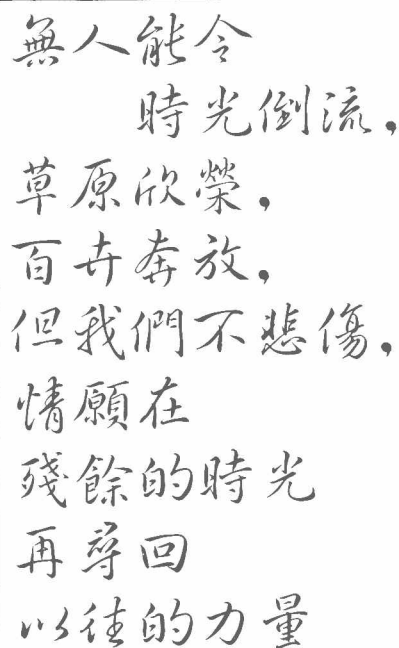 無人能令
時光倒流，
草原欣榮，
百卉奔放，
但我們不悲傷，
情願在
殘餘的時光
再尋回
以往的力量